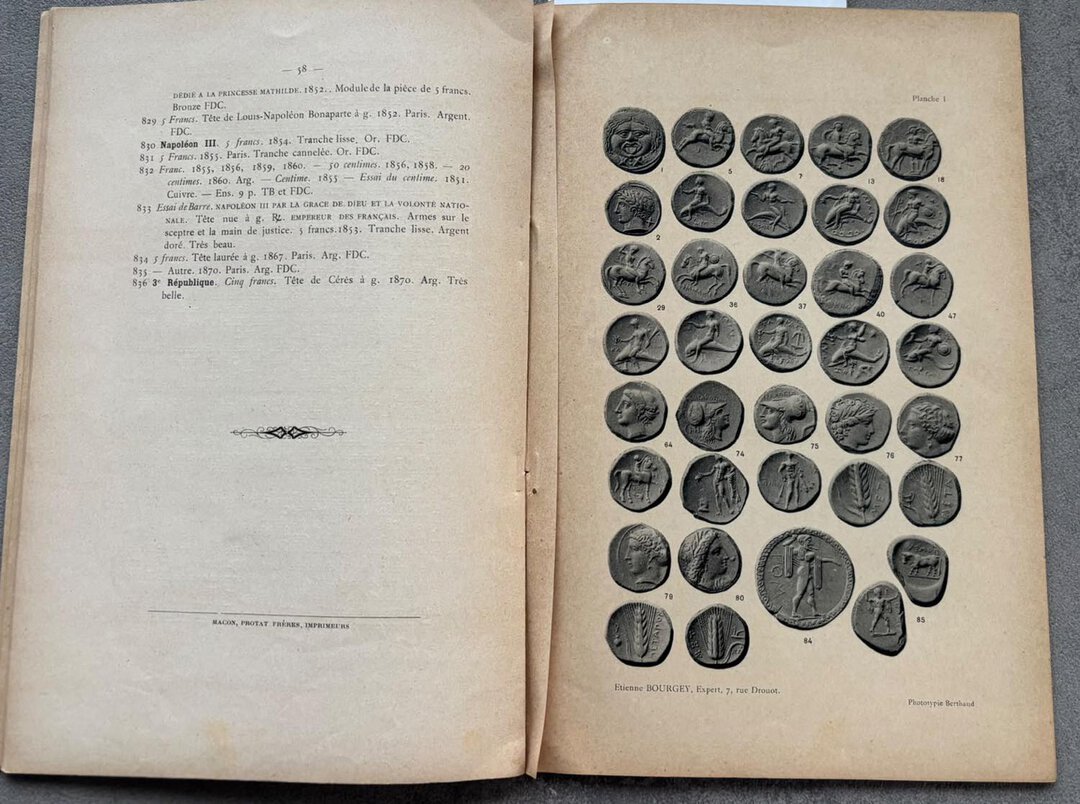 — 58 —
DÉDIÉ A LA PRINCESSE MATHILDE. 1852.. Module de la pièce de 5 francs.
Bronze FDC.
829 5 Francs. Tête de Louis-Napoléon Bonaparte à g. 1852. Paris. Argent.
FDC.
830 Napoléon III. 5 francs. 1854. Tranche lisse. Or. FDC.
831 5 Francs. 1855. Paris. Tranche cannelée. Or. FDC.
832 Franc. 1855, 1856, 1859, 1860. — 50 centimes. 1856, 1858. — 20
centimes. 1860. Arg. — Centime. 1855 — Essai du centime. 1851.
Cuivre. — Ens. 9 p. TB et FDC.
833 Essai de Barre. NAPOLÉON III PAR LA GRACE DE DIEU ET LA VOLONTÉ NATIO-
NALE. Tête nue à g. ℞. EMPEREUR DES FRANÇAIS. Armes sur le
sceptre et la main de justice. 5 francs.1853. Tranche lisse. Argent
doré. Très beau.
834 5 francs. Tête laurée à g. 1867. Paris. Arg. FDC.
835 — Autre. 1870. Paris. Arg. FDC.
836 3e République. Cinq francs. Tête de Cérès à g. 1870. Arg. Très
belle.
MACON, PROTAT FRÈRES, IMPRIMEURS
Planche I
1 5 7 13 18
2
29 36 37 40 47
64 74 75 76 77
79 80 84 85
Etienne BOURGEY, Expert, 7, rue Drouot.
Phototypie Berthaud